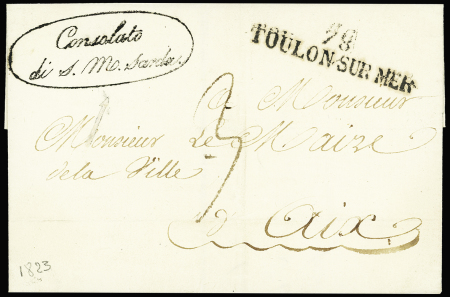 Consolato
di S. M. Sarda
78
TOULON-SUR-MER
A Monsieur
Monsieur Le Maire
de la Ville
3
D'Aix
1823